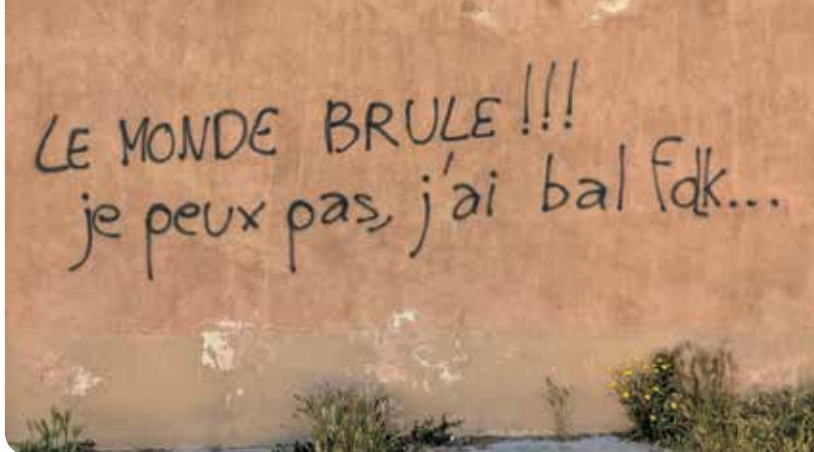 LE MONDE BRULE!!!
je peux pas, j'ai bal fdk...